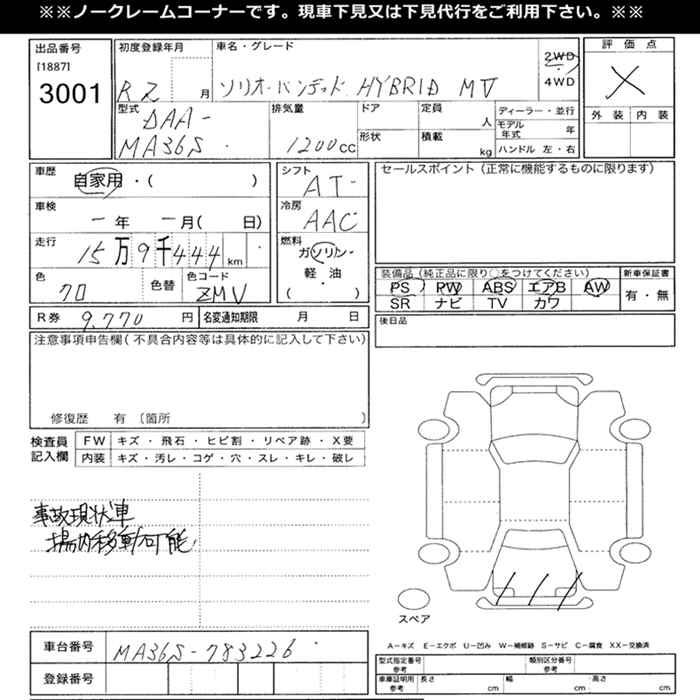 ※※ノークレームコーナーです。現車下見又は下見代行をご利用下さい。※※
出品番号 初度登録年月 車名・グレード 2WD 4WD 評価点
[1887]
3001
R2 月 ソリオ・バンディット HYBRID MV X
外装 内装
型式 排気量 ドア 定員 人 ディーラー・並行
DAA-
MA36S 1200cc 形状 積載 kg モデル年式 年
ハンドル 左・右
車歴 自家用・( ) シフト AT セールスポイント(正常に機能するものに限ります)
車検 一年 一月( 日) 冷房 AAC
走行 15万9千444 km 燃料 ガソリン・軽・油 ( )
装備品(純正品に限り○をつけてください) 新車保証書
PS PW ABS エアB AW 有・無
SR ナビ TV カワ
色 色替 色コード ZMV
R券 9,770 円 名変通知期限 月 日 後日品
注意事項申告欄(不具合内容等は具体的に記入して下さい)
修復歴 有 〔箇所 〕
検査員記入欄 FW キズ・飛石・ヒビ割・リペア跡・X要
内装 キズ・汚レ・コゲ・穴・スレ・キレ・破レ
事故現状車
場内移動可能
スペア
A=キズ E=エクボ U=凹み W=補修跡 S=サビ C=腐食 XX=交換済
車台番号 MA36S-783226
登録番号
型式指定番号 参考 類別区分番号 参考
車庫証明用 参考 長さ cm 幅 cm 高さ cm